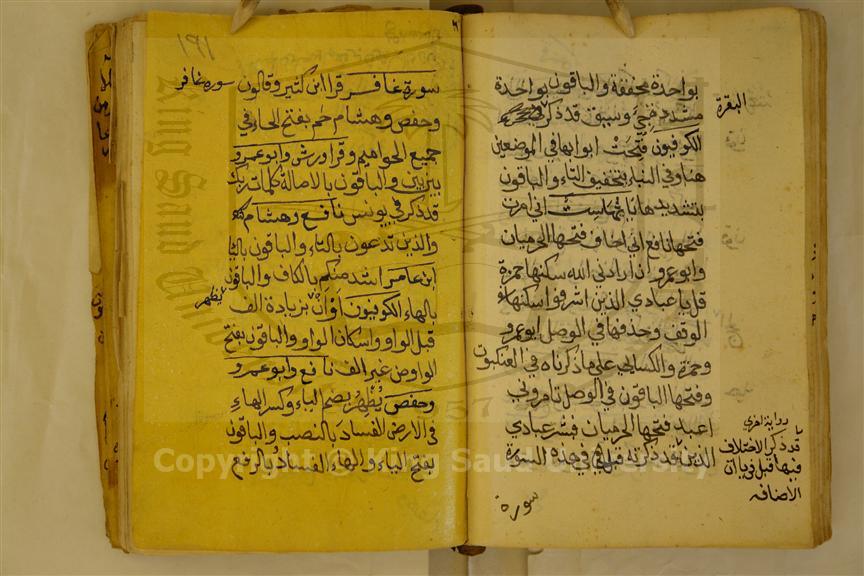 بواحدة مخففة والباقون بواحدة
مشددة وسيق قد ذكر
البقرة
الكوفيون فتحت ابوابها في الموضعين
هنا وفي النبا بتخفيف التاء والباقون
بتشديدها ياءاتها ست اني امرت
فتحها نافع اني اخاف فتحها الحرميان
وابو عمرو ان ارادني الله سكنها حمزة
قل يا عبادي الذين اسرفوا سكنها
الوقف وحذفها في الوصل ابو عمرو
وحمزة والكسائي على ما ذكرناه في العنكبوت
وفتحها الباقون في الوصل تامروني
اعبد فتحها الحرميان فبشر عبادي
الذين قد ذكرته قبل في هذه السورة
رواية اخرى
قد ذكر الاختلاف
فيها قبل في باب
الاضافه
سورة
١٩١
سورة غافر قرا ابن كثير وقالون
سورة غافر
وحفص وهشام حم بفتح الحاء في
جميع الحواميم وقرا ورش وابو عمرو
بين بين والباقون بالامالة كلمات ربك
قد ذكر في يونس نافع وهشام
والذين تدعون بالتاء والباقون بالياء
ابن عامر اشد منكم بالكاف والباقون
بالهاء الكوفيون أَوْ أن بزيادة الف
يظهر
قبل الواو واسكان الواو والباقون بفتح
الواو من غير الف نافع وابو عمرو
وحفص يُظْهِرَ بضم الياء وكسر الهاءِ
في الارض الفسادَ بالنصب والباقون
بفتح الياء والهاء الفسادُ بالرفع
Copyright © King Saud University
King Saud University
1957